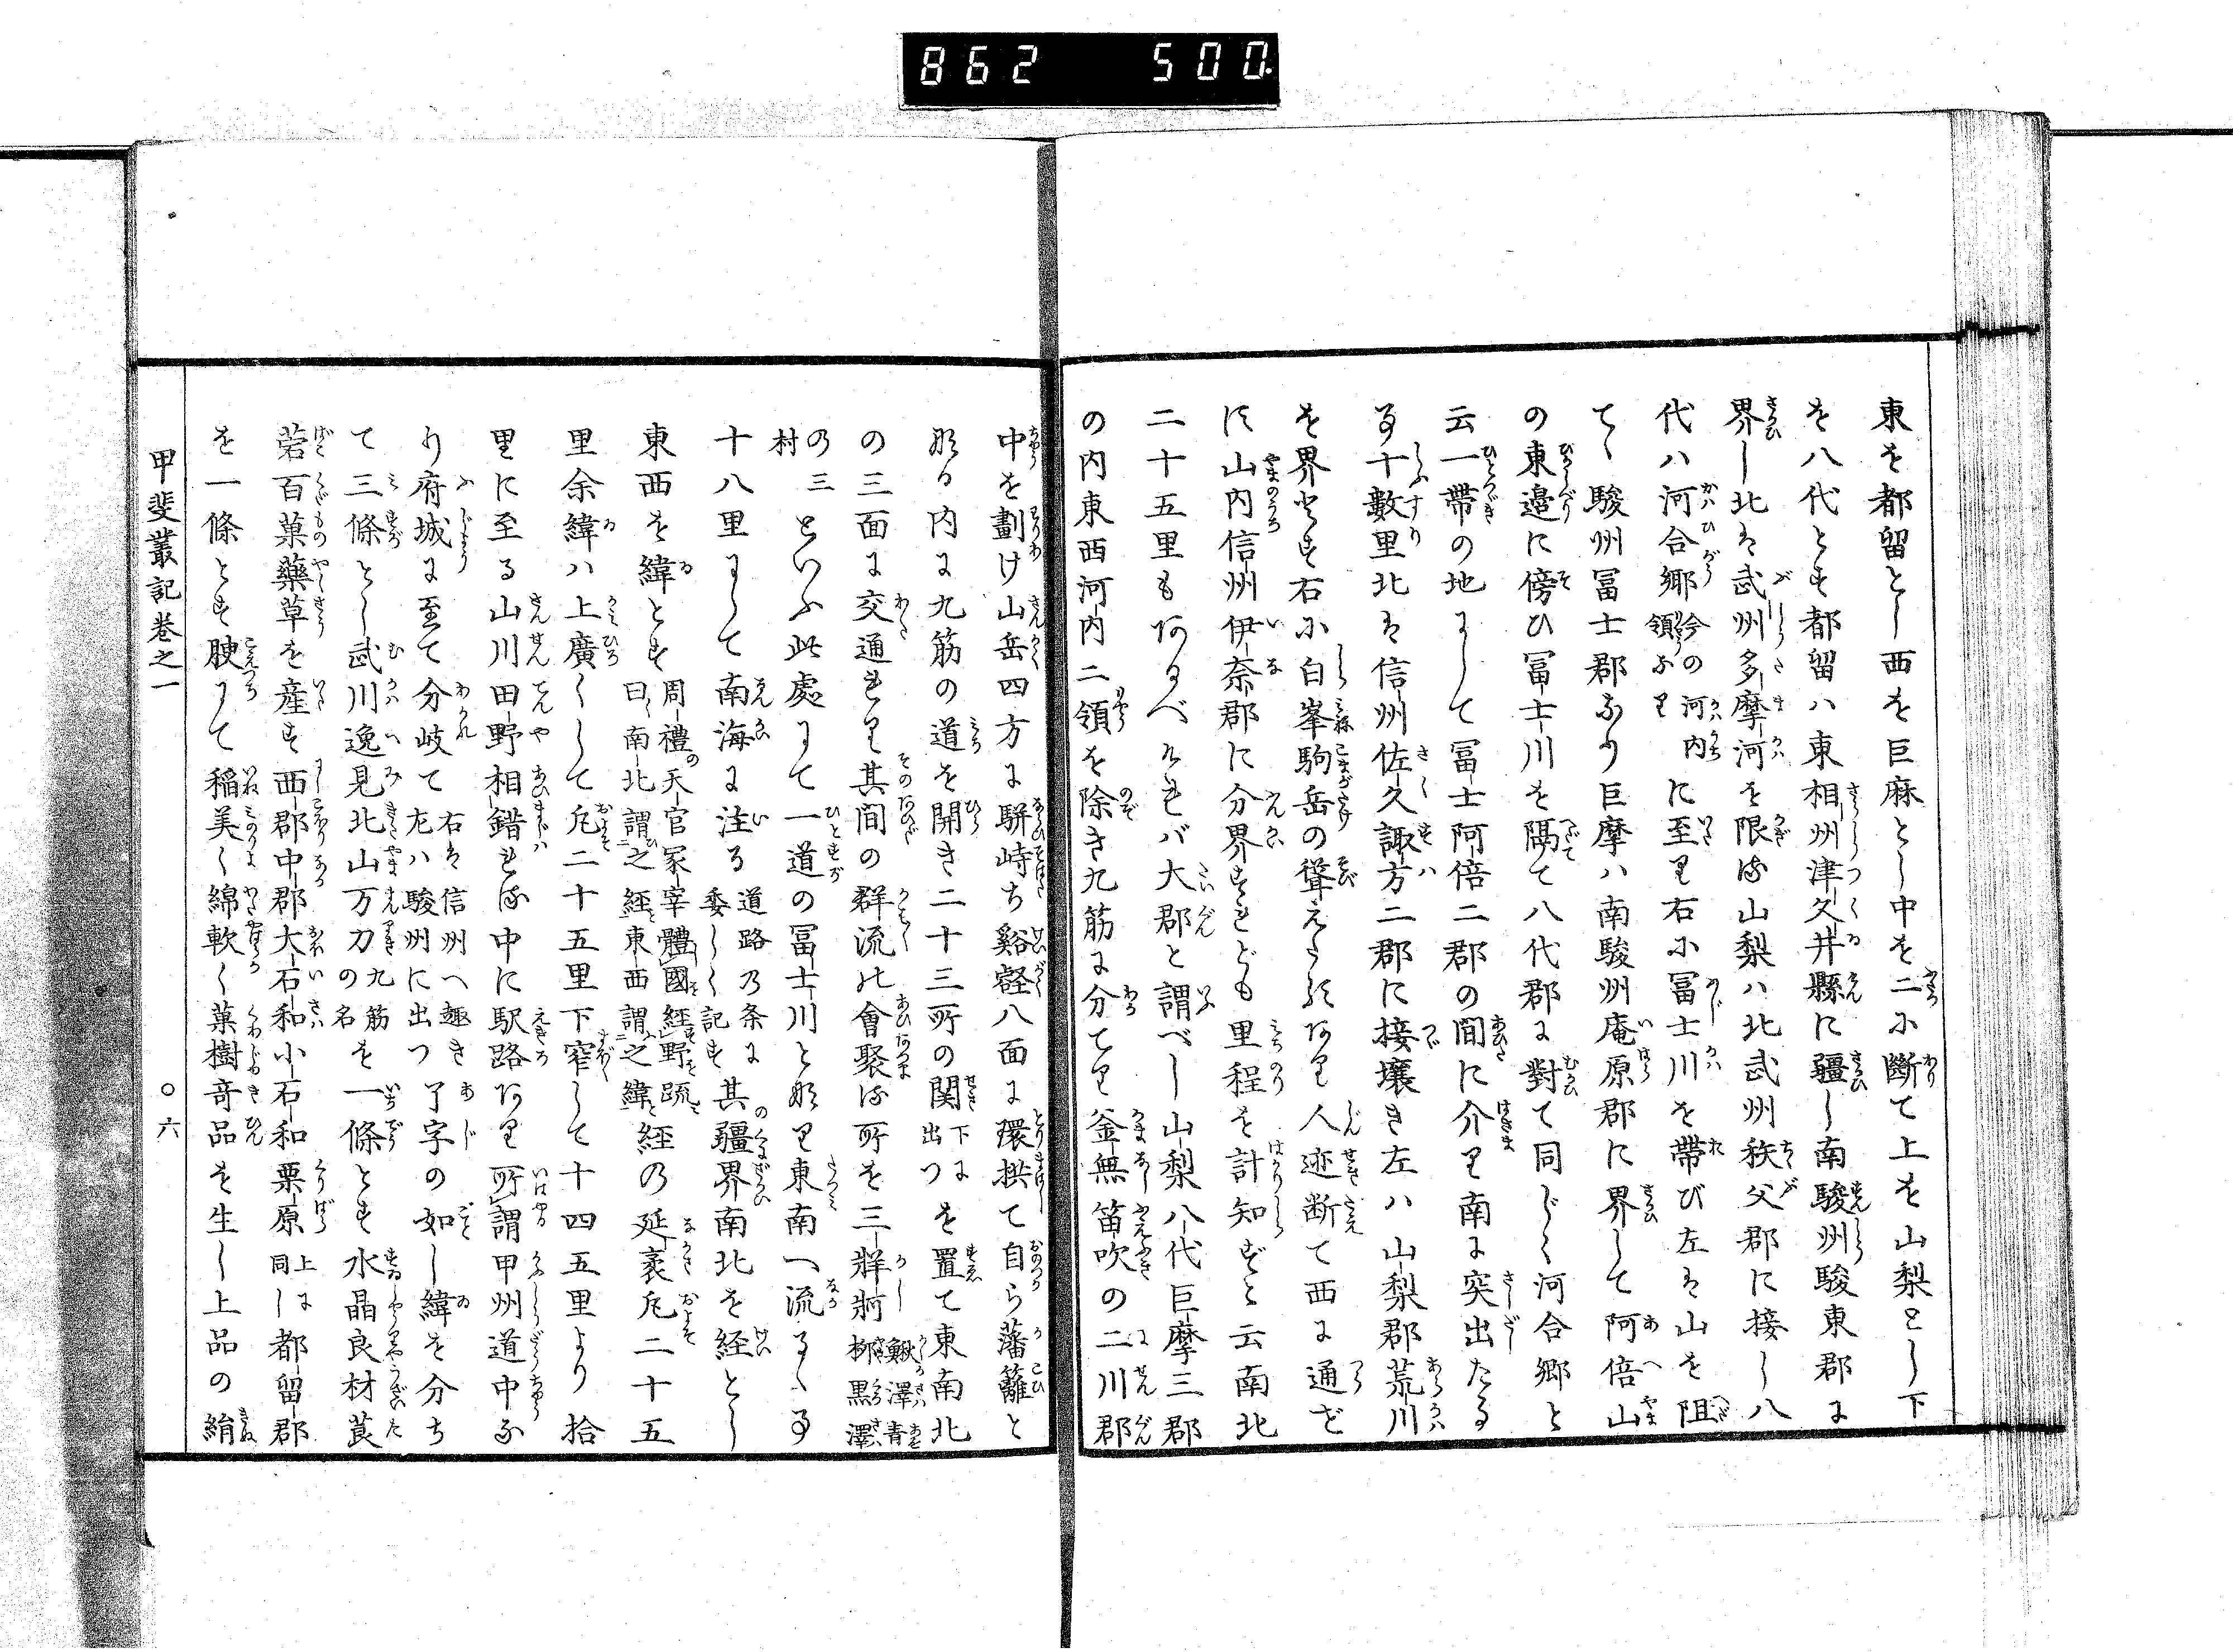 862 500
東を都留とし西を巨麻とし中を二に断て上を山梨とし下
を八代とす都留ハ東相州津久井縣に疆し南駿州駿東郡に
界し北は武州多摩河を限る山梨ハ北武州秩父郡に接し八
代ハ河合郷今の河内領なりに至り右に冨士川を帯び左は山を阻
てゝ駿州冨士郡なり巨摩ハ南駿州庵原郡に界して阿倍山
の東邉に傍ひ冨士川を隔て八代郡に對て同じく河合郷と
云一帶の地にして冨士阿倍二郡の間に介り南に突出たる
事十數里北は信州佐久諏方二郡に接壤き左ハ山梨郡荒川
を界とす右に白峯駒岳の聳えたるあり人迹断て西に通ぜ
ず山内信州伊奈郡に分界すれども里程を計知ずと云南北
二十五里もあるべけれバ大郡と謂べし山梨八代巨摩三郡
の内東西河内二領を除き九筋に分てり釜無笛吹の二川郡
中を劃け山岳四方に駢峙ち谿壑八面に環拱て自ら藩籬と
なる内に九筋の道を開き二十三所の関下に出つを置て東南北
の三面に交通せり其間の群流の會聚る所を三牂牁鰍澤青柳黒澤
の三村といふ此處にて一道の冨士川となり東南へ流るゝ事
十八里にして南海に注る道路の条に委しく記す其疆界南北を経とし
東西を緯とす周禮の天官冢宰體國経野疏曰南北謂之経東西謂之緯経の延袤凡二十五
里余緯ハ上廣くして凡二十五里下窄して十四五里より拾
里に至る山川田野相錯れる中に駅路あり所謂甲州道中な
り府城に至て分岐て右は信州へ趣き左ハ駿州に出つ了字の如し緯を分ち
て三條とし武川逸見北山万力の九筋の名を一條とす水晶良材莨
菪百菓藥草を産す西郡中郡大石和小石和栗原上に同し都留郡
を一條とす腴にして稲美く綿軟く菓樹竒品を生し上品の絹
甲斐叢記巻之一 ○六